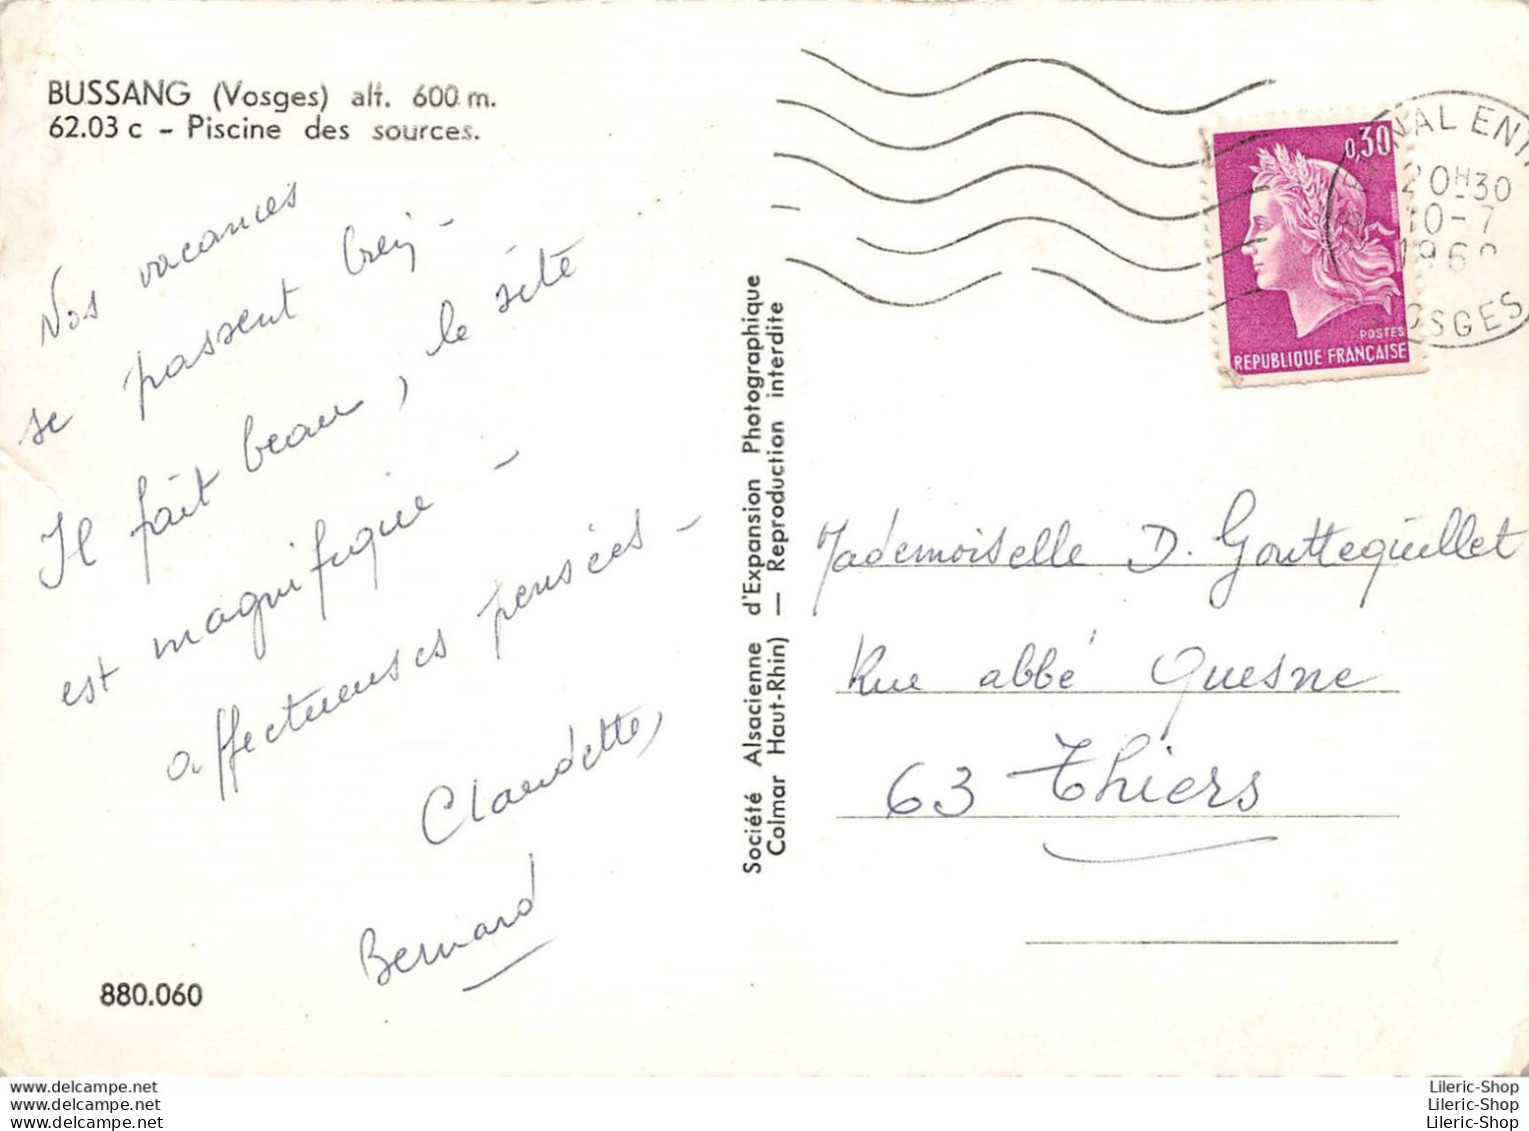 BUSSANG (Vosges) alt. 600 m.
62.03 c - Piscine des sources.
Nos vacances
se passent bien -
Il fait beau, le site
est magnifique -
affectueuses pensées -
Claudette,
Bernard
880.060
Société Alsacienne d'Expansion Photographique
Colmar Haut-Rhin) — Reproduction interdite
0,30
POSTES
REPUBLIQUE FRANÇAISE
20H30
10-7
196
VOSGES
Mademoiselle D. Gouttequillet
Rue abbé Quesne
63 Thiers
www.delcampe.net
www.delcampe.net
www.delcampe.net
Lileric-Shop
Lileric-Shop
Lileric-Shop